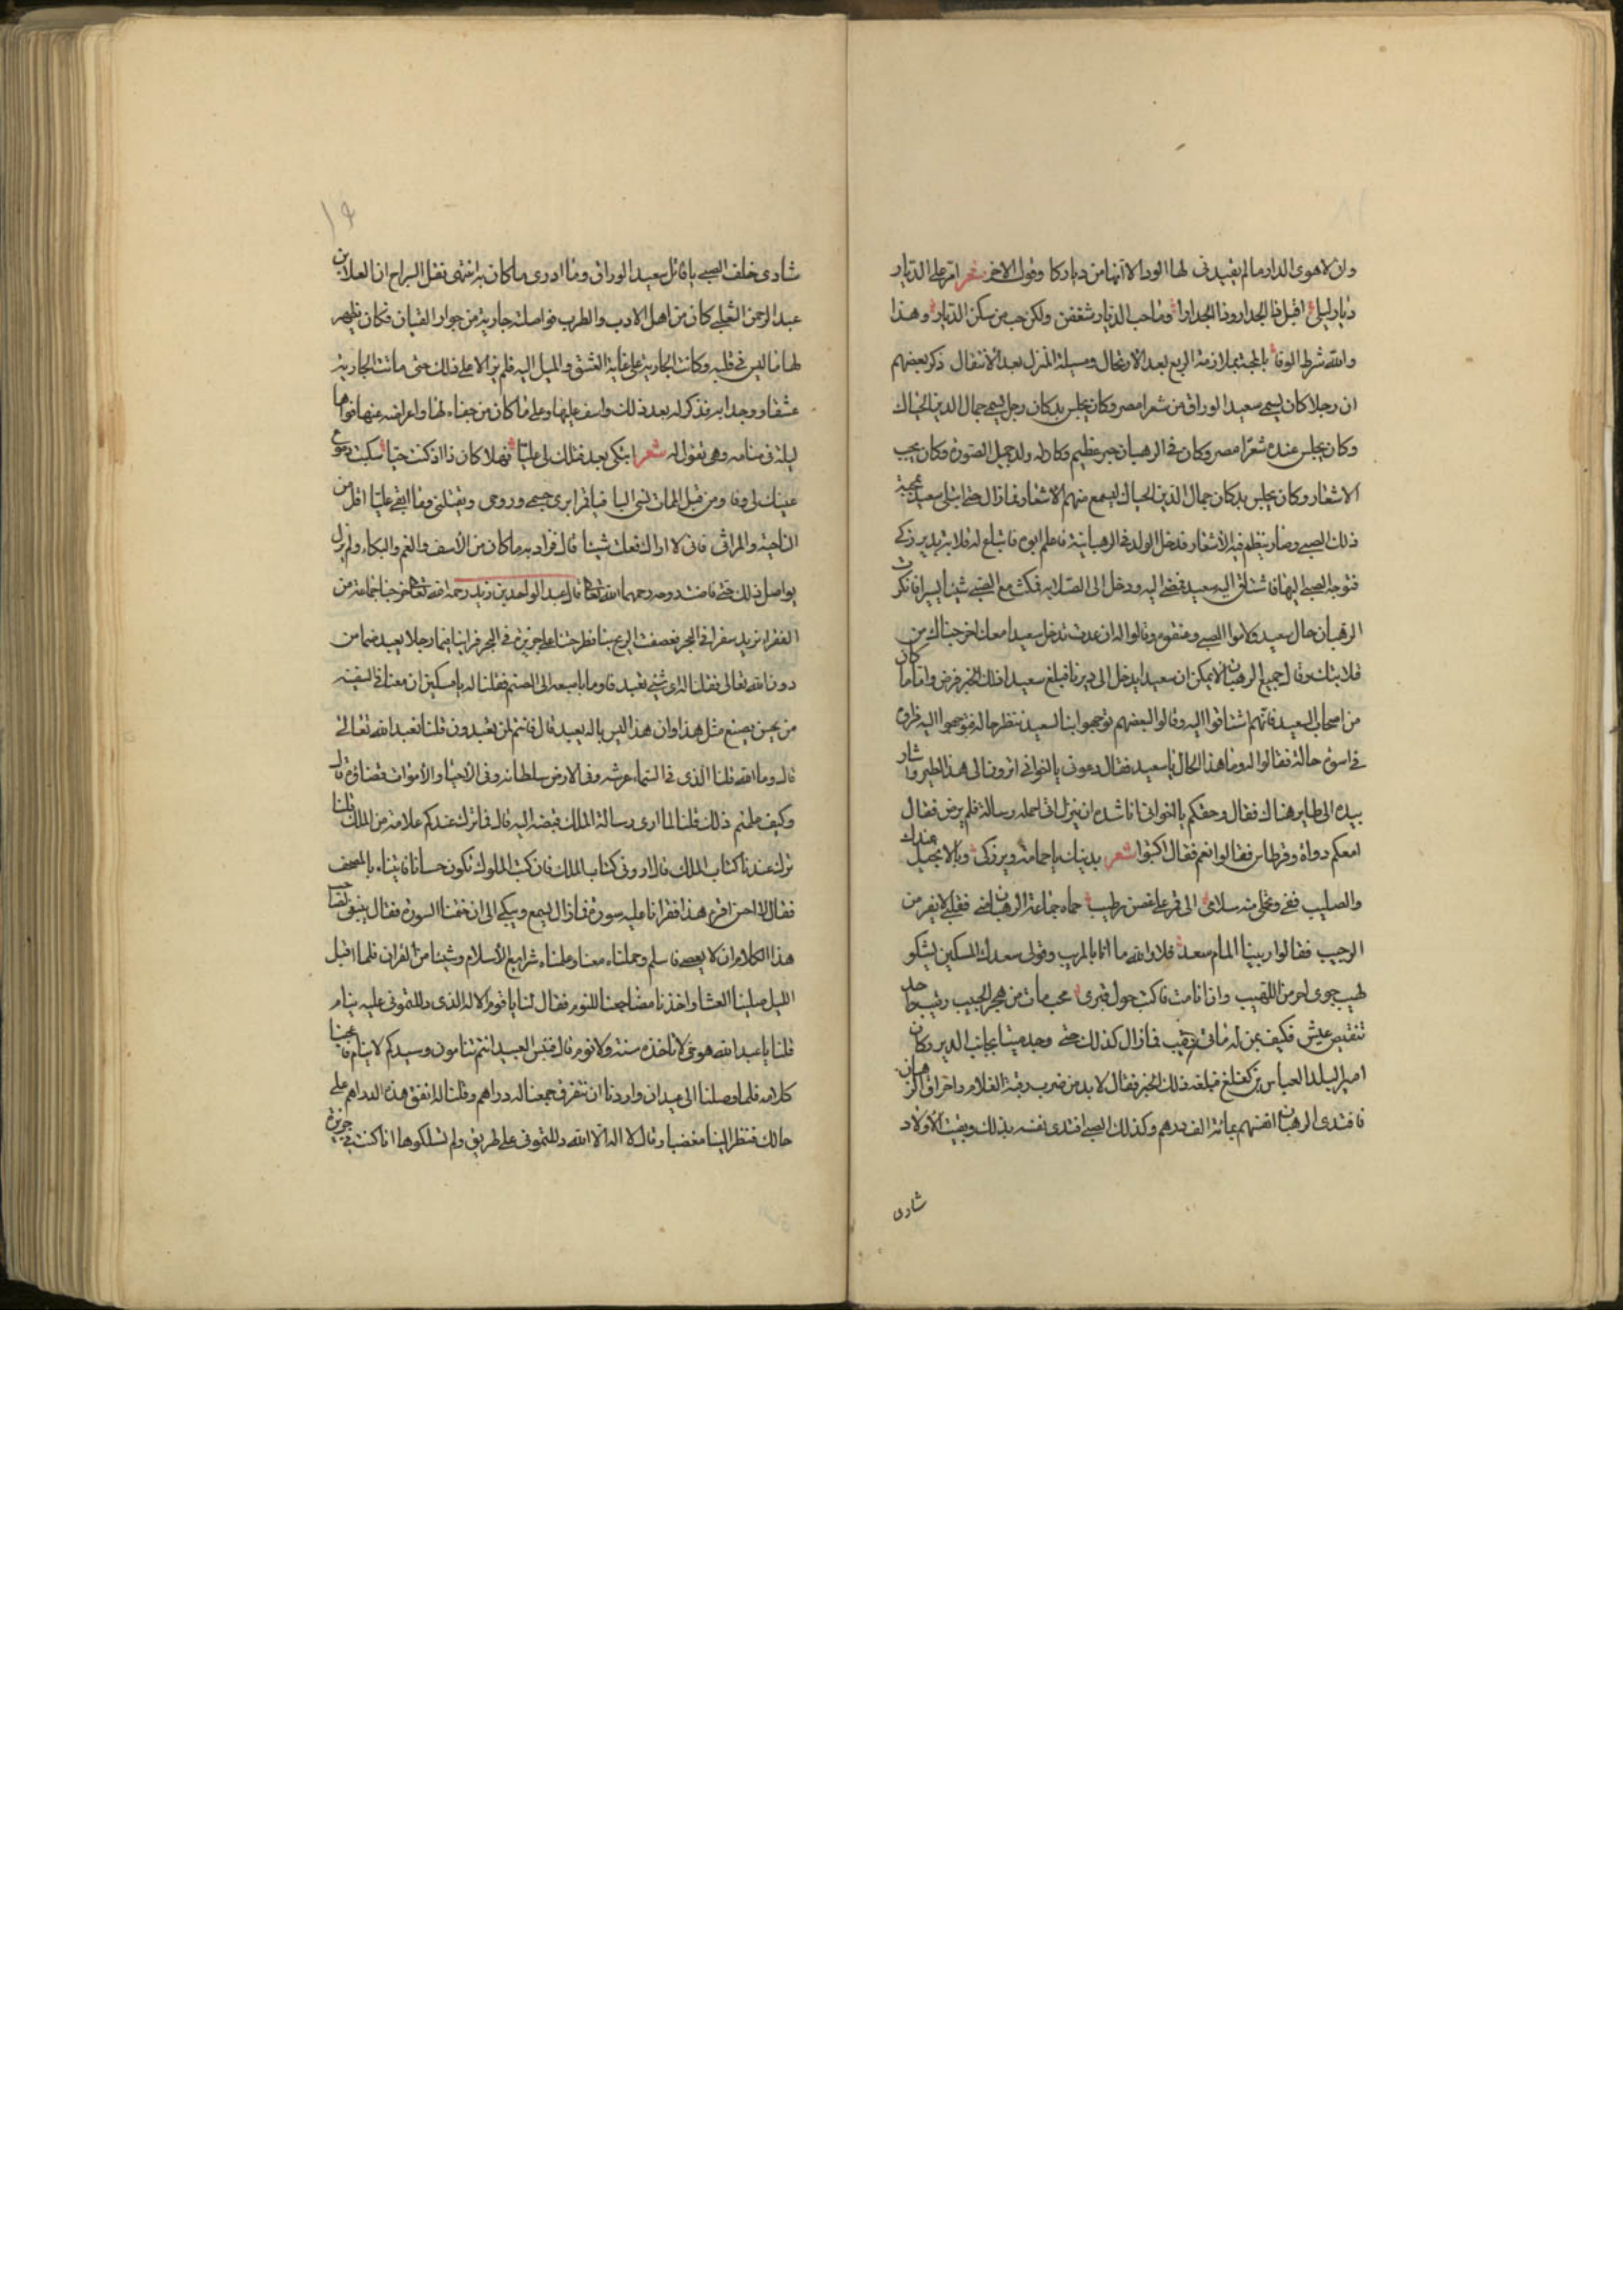 وان لاهوى الدار مالم يفيدنى لها الود الا انها من ديارکا وقول الاخر شعر امر على الديار
ديار ليلى اقبل ذا الجدار وذا الجدارا وما حب الديار شغفن ولكن حب من سكن الديار وهذا
والله شرط الوفا بالمحبة بملازمة الربع بعد الارتحال ومسيلة المنزل بعد الانتقال ذكر بعضهم
ان رجلا كان يسمى سعيد الوراق من شعرا مصر وكان يجلس بدكان رجل يسمى جمال الدين الخياك
وكان يجلس عنده شعرا مصر وكان فى الرهبان حبر عظيم وكان له ولد جميل الصورة وكان يحب
الاشعار وكان يجلس بدكان جمال الدين الحياك ليسمع منهم الاشعار فما زال حتى ابتلى سعيد بمحبة
ذلك الصبى وصار ينظم فيه الاشعار فدخل الولد فى الرهبانية فاعلم ابوه فابتاع له قلاية بدير زكى
فتوجه الصبى اليها فاشتاق اليه سعيد فمضى اليه ودخل الى القلاية فمكث مع الصبى شيئا يسيرا فانكرت
الرهبان حال سعيد ولاموا الصبى وعنفوه وقالوا له ان عدت تدخل سعيدا معك اخرجناك من
قلايتك وقال جميع الرهبان لا يمكن ان سعيدا يدخل الى ديرنا فبلغ سعيدا ذلك الخبر فمرض واما ما كان
من اصحاب سعيد فانهم اشتاقوا اليه وقالوا لبعضهم توجهوا بنا لسعيد ننظر حاله فتوجهوا اليه فراوه
فى اسوء حالة فقالوا له وما هذا الحال يا سعيد فقال دعونى يا اخوانى اترون الى هذا الطير واشار
بيده الى طاير هناك فقال وحقكم يا اخوانى انا شده ان ينزل انى احمله رسالة فلم يرض فقال
امعكم دواة وقرطاس فقالوا نعم فقال اكتبوا شعر بدينك يا حمامة دير زكى وبالانجيل عندك
والصليب قفى وتحملى منه سلامى الى قمر على غصن رطيب حماه جماعة الرهبان عنى فقلبى لا يقر من
الوجيب فقالوا رابنا المام سعد فلا والله ما انا بالمريب وقولى سعدك المسكين يشكو
لهيب جوى احر من اللهيب وان انا مت فاكتب حول قبرى محب مات من هجر الحبيب رقيب واحد
تنغيص عيش فكيف بمن له مائتى رقيب فما زال كذلك حتى وجد ميتا بجانب الدير وكان
امير البلد العباس بن كيغلغ فبلغه ذلك الخبر فقال لا بد من ضرب رقبة الغلام واحراق الرهبان
فافتدى الرهبان انفسهم بمائة الف درهم وكذلك الصبى افتدى نفسه بذلك وبقيت الاولاد
شادى
١٩
شادى خلف الصبى يا قاتل سعيد الوراق وما ادرى ما كان به انتهى نقل السراج ان العلا بن
عبد الرحمن التغلبى كان من اهل الادب والطرب فواصلته جارية من جوار القيان فكان يظهر
لها ما ليس فى قلبه وكانت الجارية على غاية العشق والميل اليه فلم يزالا على ذلك حتى ماتت الجارية
عشقا ووجدا به فذكر له بعد ذلك واسف عليها وعلى ما كان من جفاه لها واعراضه عنها فراها
ليلة فى منامه وهى تقول له شعر اتبكى بعد قتلك لى عليا فهلا كان ذا اذ كنت حيا سكبت دموع
عينك لى وفا ومن قبل الممات تسى اليا فيا قمرا برى جسمى وروحى ويقتلنى وما ابقى عليا اقل من
النياحة والمراثى فانى لا اراك فعلت شيئا قال فزاد به ما كان من الاسف والغم والبكاء ولم يزل
يواصل ذلك حتى فاضت روحه رحمهما الله تعالى قال عبد الواحد بن زيد رحمة الله تعالى خرجنا جماعة من
الفقرا نريد سفرا فى البحر فعصفت الريح بنا فطرحتنا على جزيرة فى البحر فراينا فيها رجلا يعبد صنما من
دون الله تعالى فقلنا له اى شئ تعبد فاوما باصبعه الى الصنم فقلنا له يا مسكين ان معنا فى السفينه
من يحسن يصنع مثل هذا وان هذا ليس باله يعبد قال فانتم لمن تعبدون قلنا نعبد الله تعالى
قال وما الله قلنا الذى فى السماء عرشه وفى الارض سلطانه وفى الاحيا والاموات قضاؤه قال
وكيف علمتم ذلك قلنا لما ادى رسالة الملك قبضه اليه قال فما ترك عندكم علامة من الملك قلنا
ترك عندنا كتاب الملك قال ارونى كتاب الملك فان كتب الملوك تكون حسانا فاتيناه بالمصحف
فقال لا احسن اقره هذا فقرانا عليه سورة فما زال يسمع ويبكى الى ان ختمنا السورة فقال ينبغى لصاحب
هذا الكلام ان لا يعصى فاسلم وحملناه معنا وعلمناه شرايع الاسلام وشيئا من القران فلما اقبل
الليل صلينا العشا واخذنا مضاجعنا للنوم فقال لنا يا قوم الاله الذى دللتمونى عليه ينام
قلنا يا عبد الله هو حى لا تاخذه سنة ولا نوم قال فبئس العبيد انتم تنامون وسيدكم لا ينام فاعجبنا
كلامه فلما وصلنا الى عبدان واردنا ان نتفرق جمعنا له دراهم وقلنا له انفق هذه الدراهم على
حالك فنظر الينا مغضبا وقال لا اله الا الله دللتمونى على طريق ولم تسلكوها انا كنت فى جزيرة